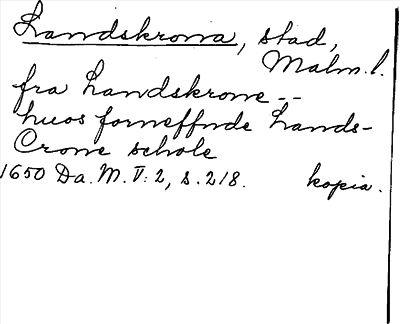 Landskrona, stad,
Malm.l.
fra Landskrone --
huos forneffnde Lands-
Crone schole
1650 Da. M. V: 2, s. 218. kopia.